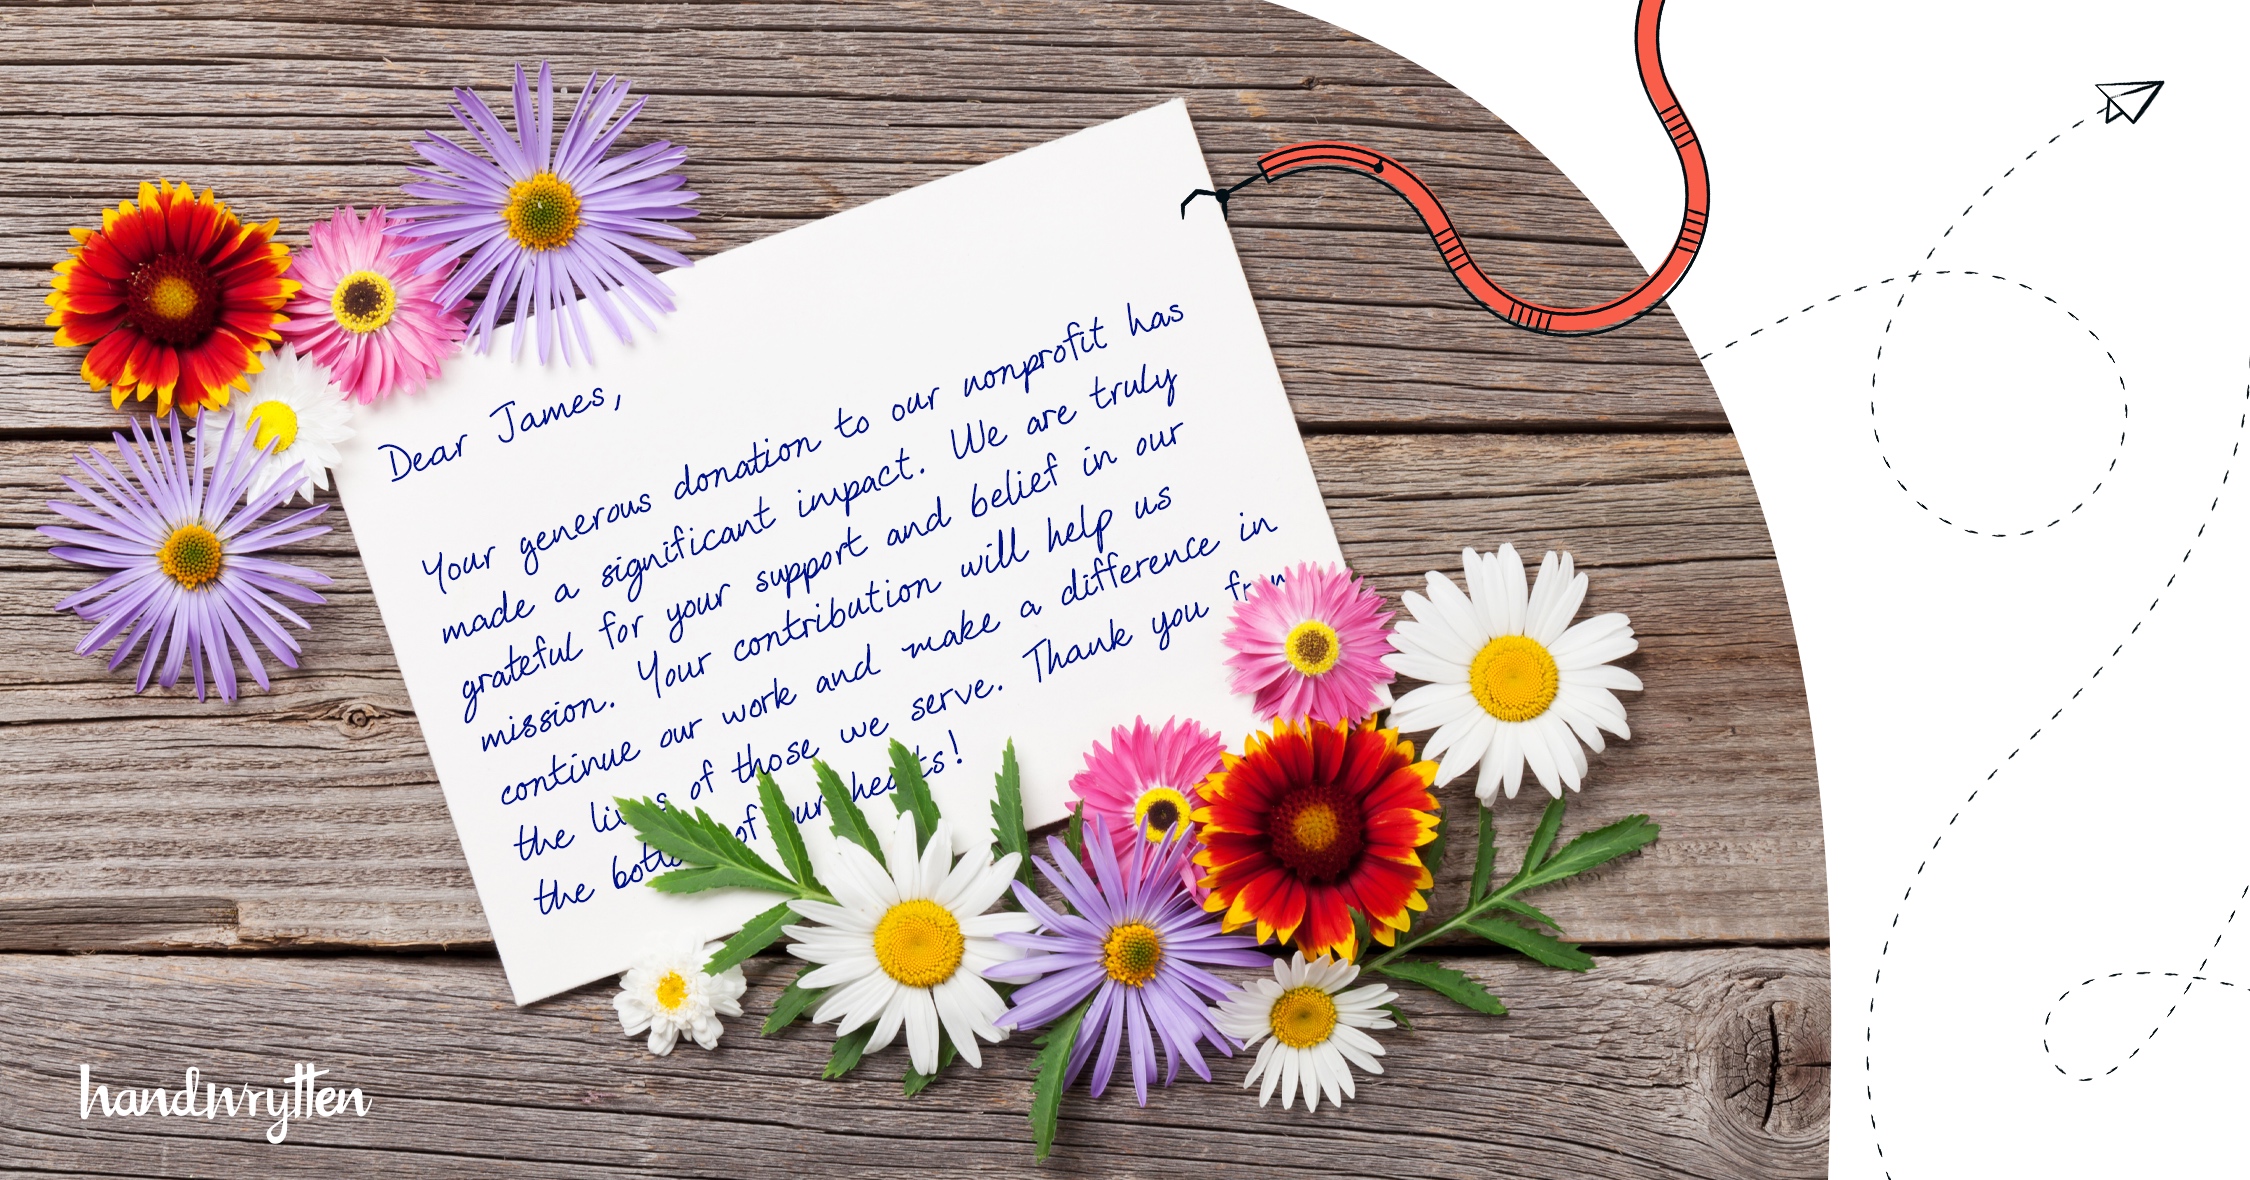 Dear James,
Your generous donation to our nonprofit has
made a significant impact. We are truly
grateful for your support and belief in our
mission. Your contribution will help us
continue our work and make a difference in
the lives of those we serve. Thank you from
the bottom of our hearts!
handwrytten